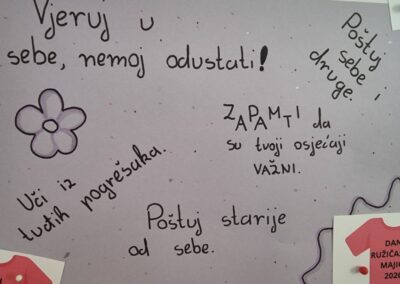 Vjeruj u
sebe, nemoj odustati!
Poštuj
sebe i
druge.
ZAPAMTI da
su tvoji osjećaji
VAŽNI.
Uči iz
tuđih pogrešaka.
Poštuj starije
od sebe.
DAN
RUŽIČAS
MAJIC
2026